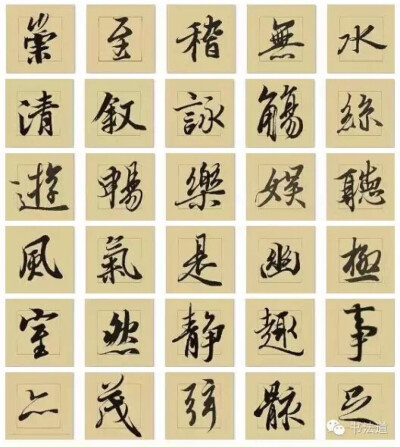 崇 至 稽 無 水
清 叙 詠 觴 絲
遊 暢 樂 娛 聽
風 氣 是 幽 極
室 然 静 趣 事
亦 茂 弦 骸
书法道